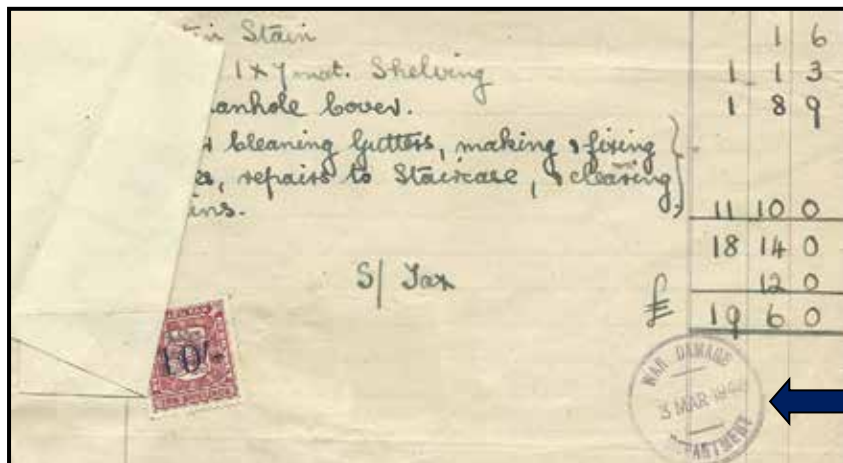 Stain 1 6
1 x 7 mat. Shelving 1 1 3
anhole Cover. 1 8 9
Cleaning Gutters, making & fixing
es, repairs to Staircase, & clearing
ins. 11 10 0
18 14 0
S/ Tax 12 0
£ 19 6 0
10/-
WAR DAMAGE
3 MAR
DEPARTMENT